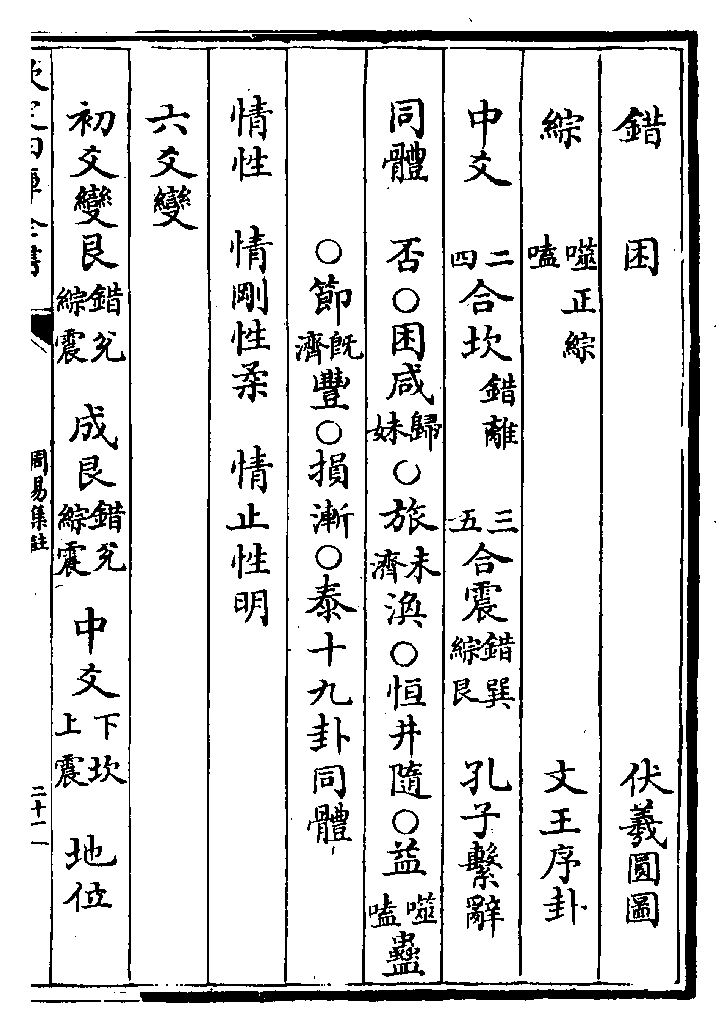 錯　困　伏羲圓圖
綜　噬嗑正綜　文王序卦
中爻　二四合坎錯離　三五合震錯巽綜艮　孔子繫辭
同體　否○困咸歸妹○旅未濟渙○恒井隨○益噬嗑蠱
○節既濟豐○損漸○泰十九卦同體
情性　情剛性柔　情止性明
六爻變
初爻變艮錯兌綜震　成艮錯兌綜震　中爻下坎上震　地位
欽定四庫全書　周易集註　二十一